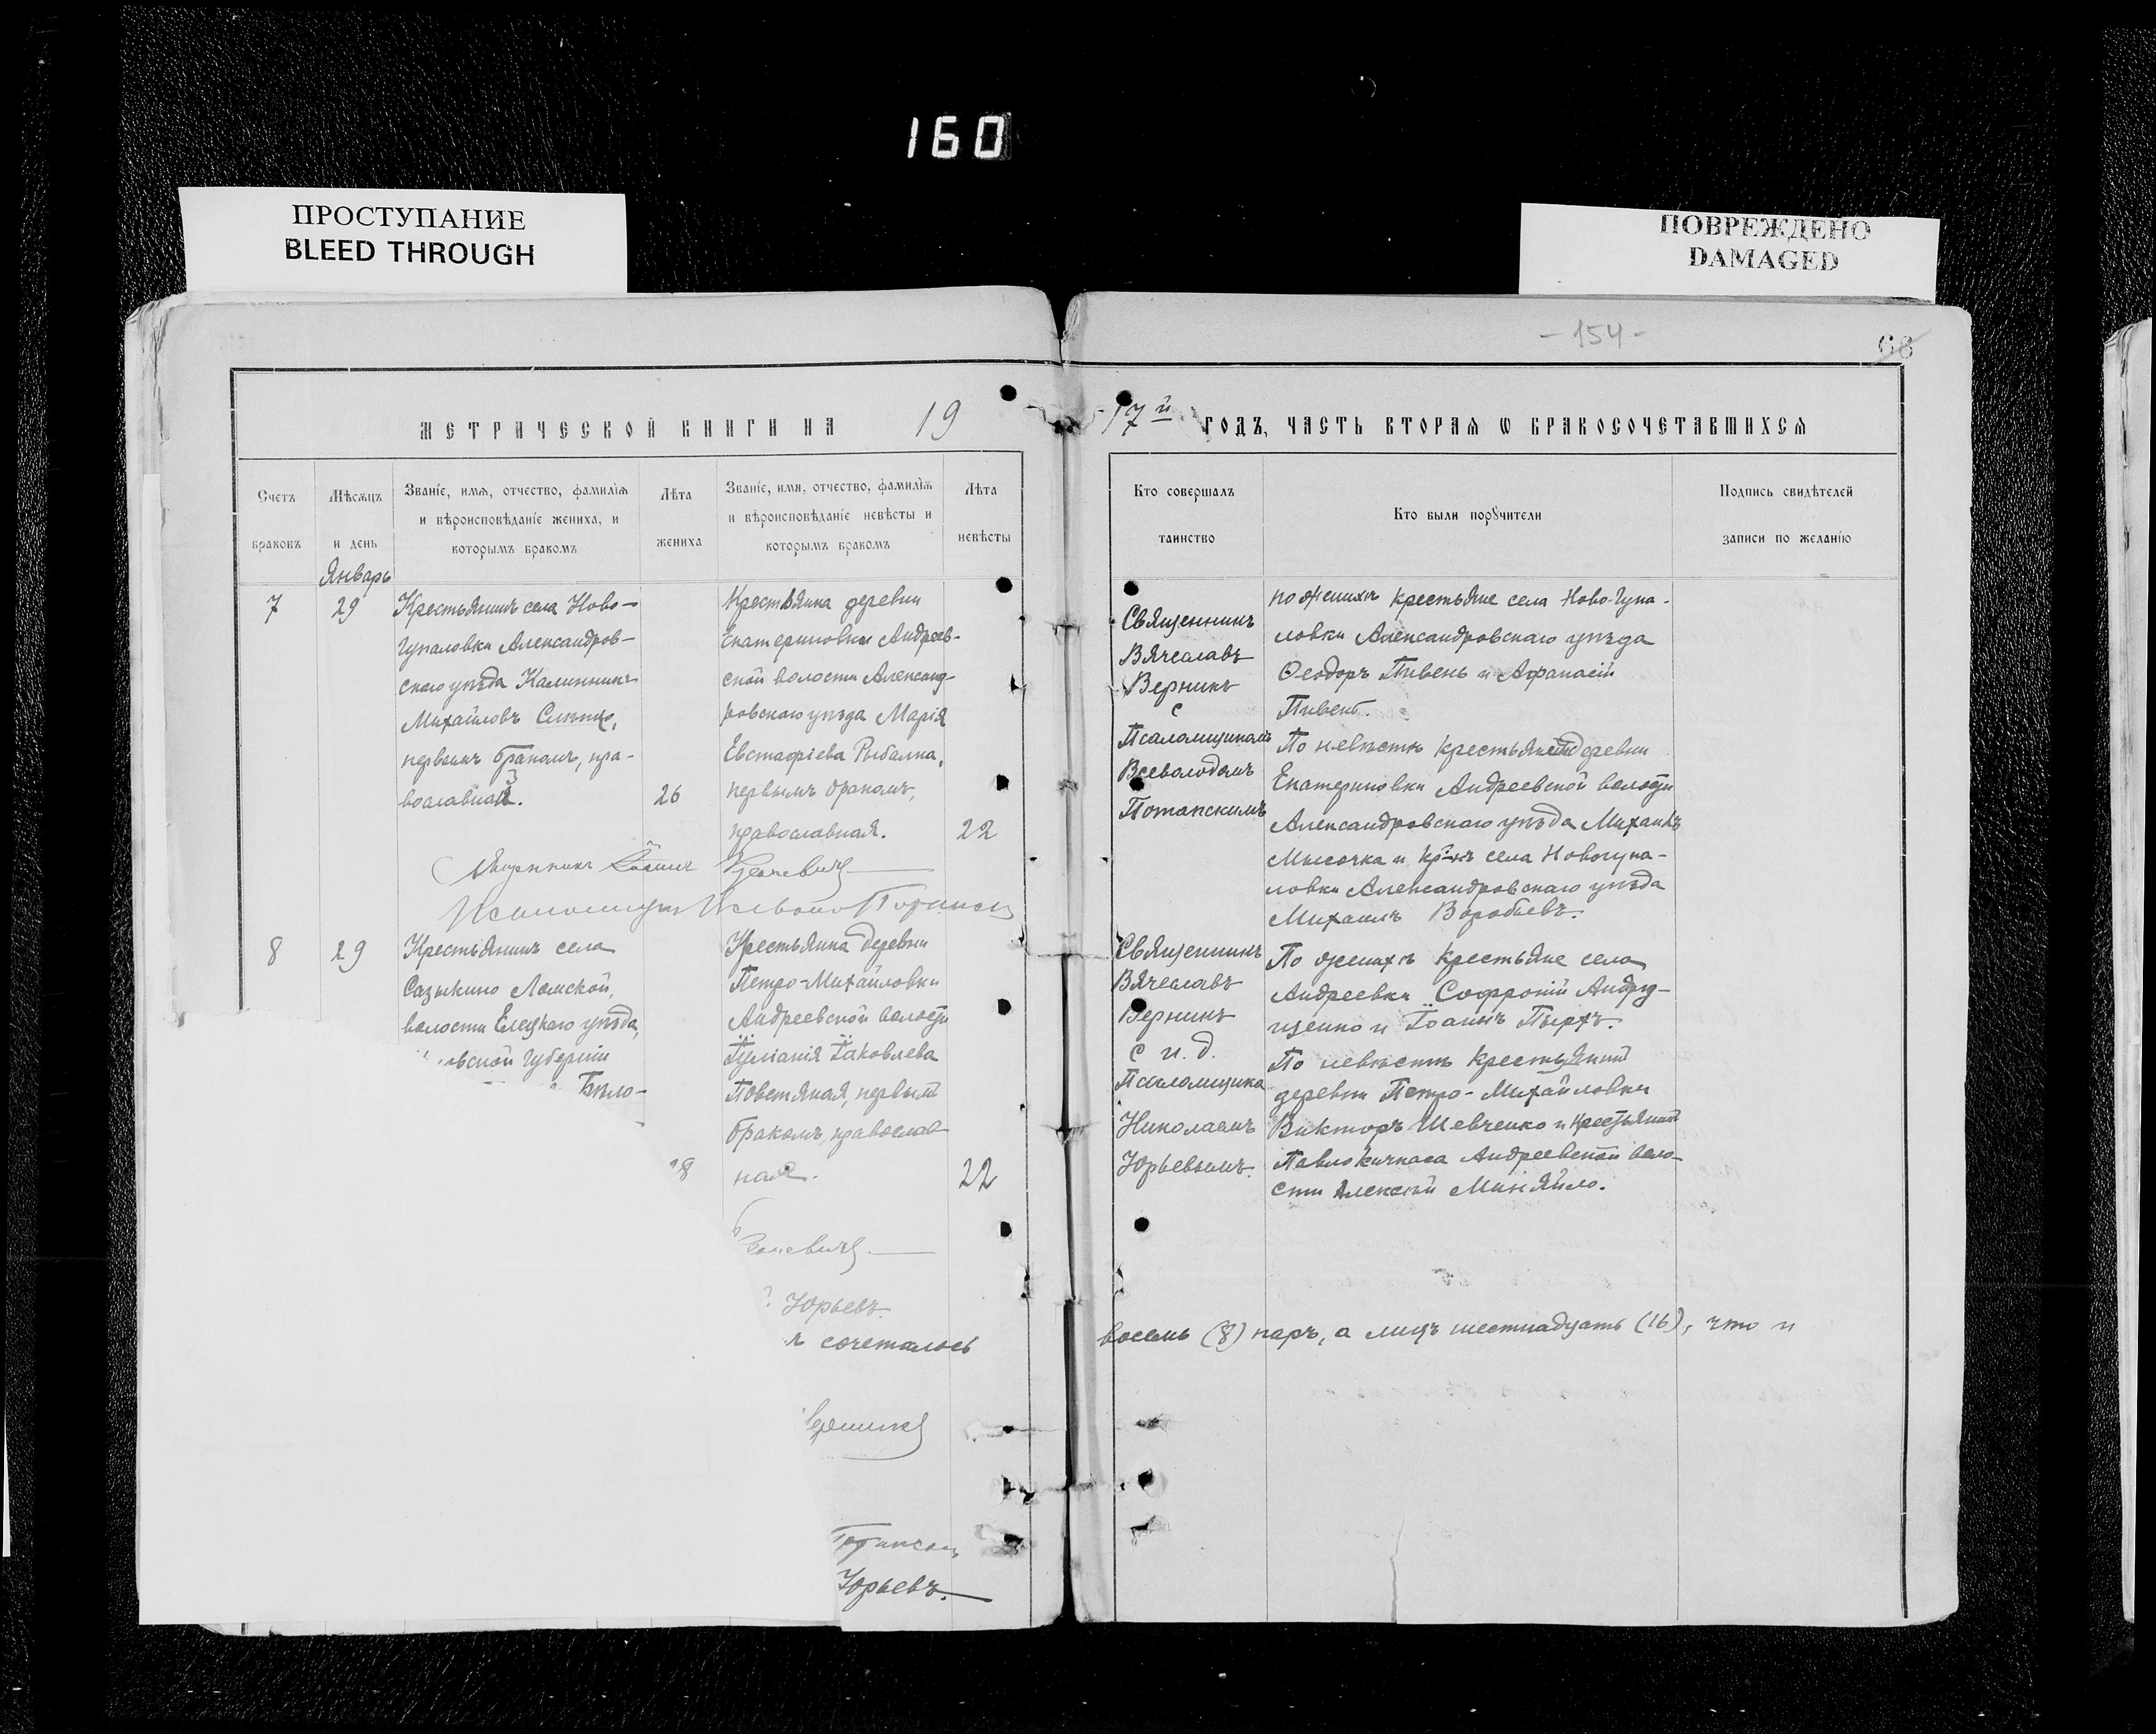 160
ПРОСТУПАНИЕ
BLEED THROUGH
ПОВРЕЖДЕНО
DAMAGED
- 154 -
68
МЕТРИЧЕСКОЙ КНИГИ НА 19
17й ГОДЪ, ЧАСТЬ ВТОРАЯ Ѡ БРАКОСОЧЕТАВШИХСЯ
Счетъ
браковъ
Мѣсяцъ
и день
Званіе, имя, отчество, фамилія
и вѣроисповѣданіе жениха, и
которымъ бракомъ
Лѣта
жениха
Званіе, имя, отчество, фамилія
и вѣроисповѣданіе невѣсты и
которымъ бракомъ
Лѣта
невѣсты
Кто совершалъ
таинство
Кто были порꙋчители
Подпись свидѣтелей
записи по желанію
Январь
7
29
Крестьянинъ села Ново-
Гупаловки Александров-
скаго уѣзда Калинникъ
Михайловъ
первымъ бракомъ, пра-
вославный.
26
Крестьянка деревни
Екатериновки Андреев-
ской волости Александ-
ровскаго уѣзда Марія
Евстафіева Рыбалка,
первымъ бракомъ,
православная.
22
Священникъ
Вячеславъ
Верникъ
с
Псаломщикомъ
Всеволодомъ
по женихѣ крестьяне села Ново-Гупа-
ловки Александровскаго уѣзда
Ѳеодоръ Пивень и Афанасій
Пивень.
По невѣстѣ крестьяне деревни
Екатериновки Андреевской волости
Александровскаго уѣзда Михаилъ
Мысочка и села Новогупа-
ловки Александровскаго уѣзда
Михаилъ Воробьевъ.
8
29
Крестьянинъ села
Сазыкино Ламской,
волости Елецкаго уѣзда,
губерніи
Бѣло-
28
Крестьянка деревни
Петро-Михайловки
Андреевской волости
Іуліанія Іаковлева
Повстяная, первымъ
бракомъ, православ
ная.
22
Священникъ
Вячеславъ
Верникъ
с и. д.
Псаломщика
Николаемъ
Юрьевымъ.
По женихѣ крестьяне села
Андреевки Софроній Андру-
щенко и Іоаннъ Пырхъ.
По невѣстѣ крестьянинъ
деревни Петро-Михайловки
Викторъ Шевченко и крестьянинъ
Павлокичкаса Андреевской воло-
сти Алексѣй Миняйло.
Юрьевъ
сочеталось
восемь (8) паръ, а лицъ шестнадцать (16), что и
Юрьевъ.